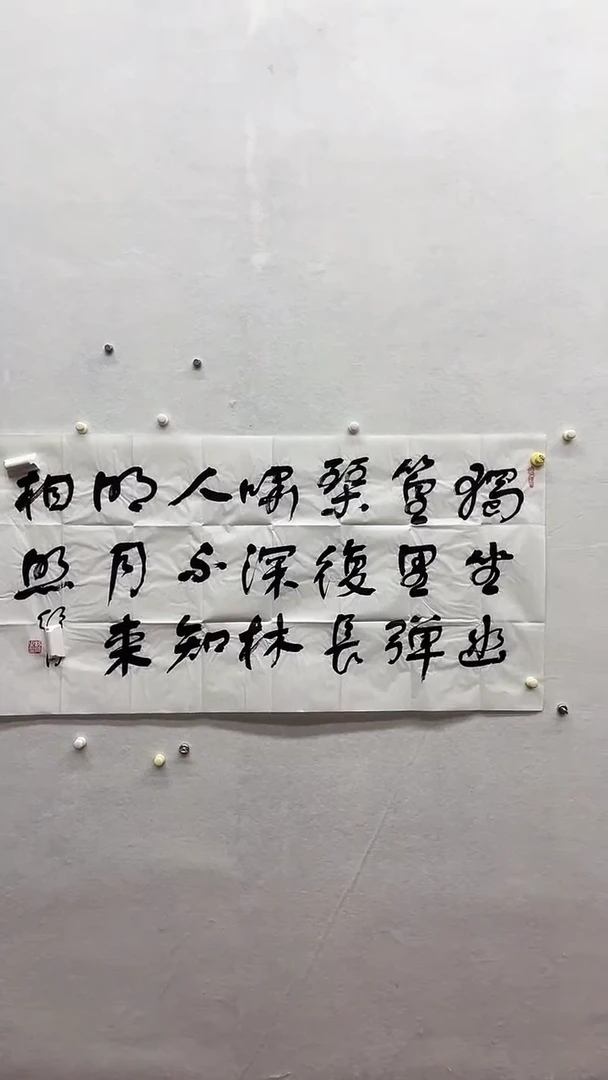 獨坐幽
篁里弹
琴復長
啸深林
人不知
明月来
相照